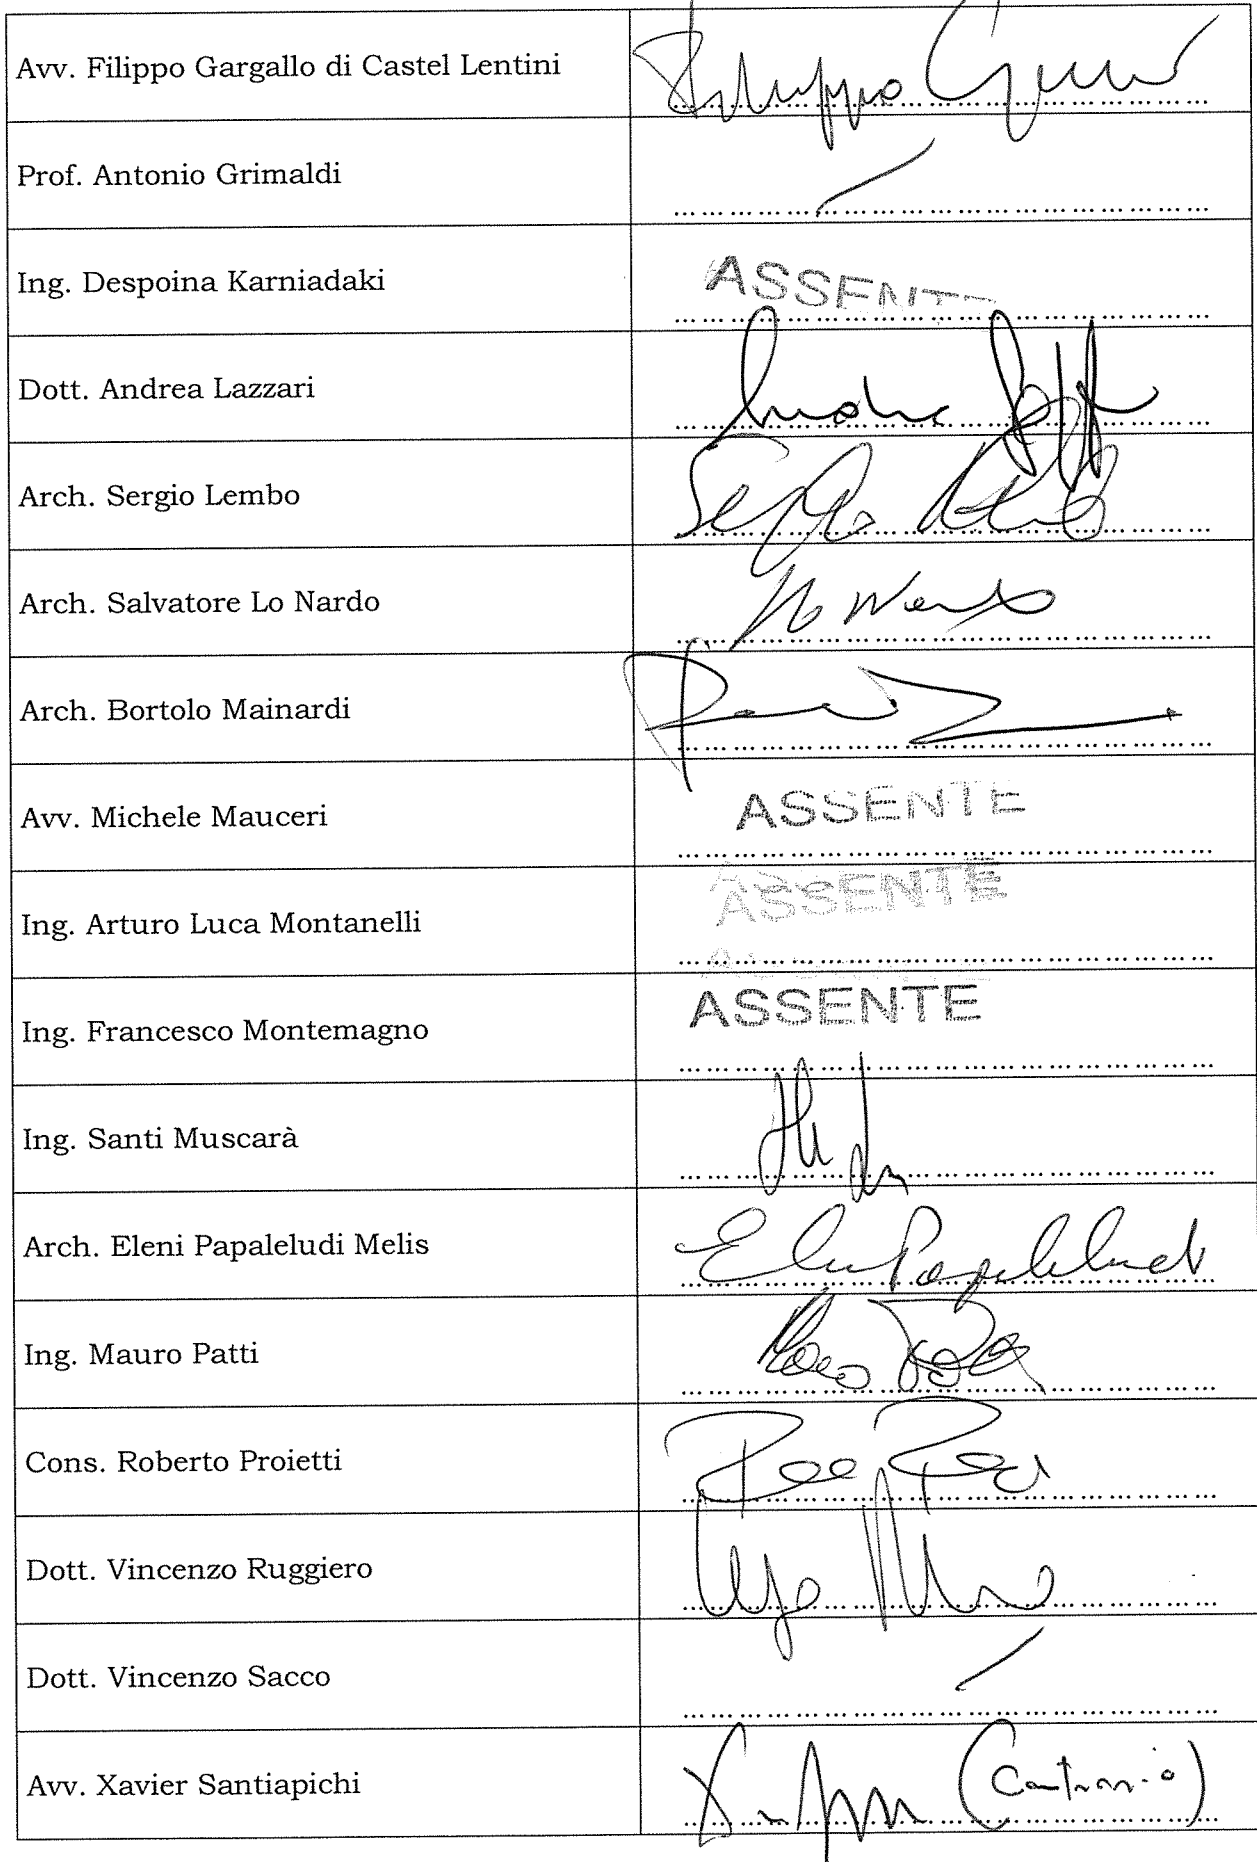 Avv. Filippo Gargallo di Castel Lentini Filippo
Prof. Antonio Grimaldi
Ing. Despoina Karniadaki ASSENTE
Dott. Andrea Lazzari Andrea
Arch. Sergio Lembo Sergio
Arch. Salvatore Lo Nardo
Arch. Bortolo Mainardi
Avv. Michele Mauceri ASSENTE
Ing. Arturo Luca Montanelli ASSENTE
Ing. Francesco Montemagno ASSENTE
Ing. Santi Muscarà
Arch. Eleni Papaleludi Melis
Ing. Mauro Patti
Cons. Roberto Proietti
Dott. Vincenzo Ruggiero
Dott. Vincenzo Sacco
Avv. Xavier Santiapichi (Contrario)